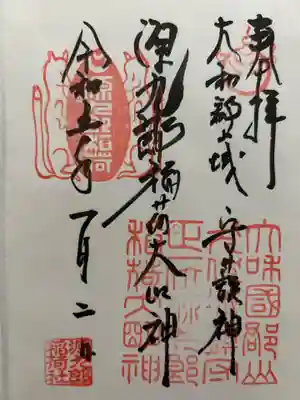 奉拝
大和郡山城 守護神
源九郎稲荷大明神
令和五年 一月二日
大和國郡山
正一位源九郎
稲荷大明神
源九郎
稲荷社